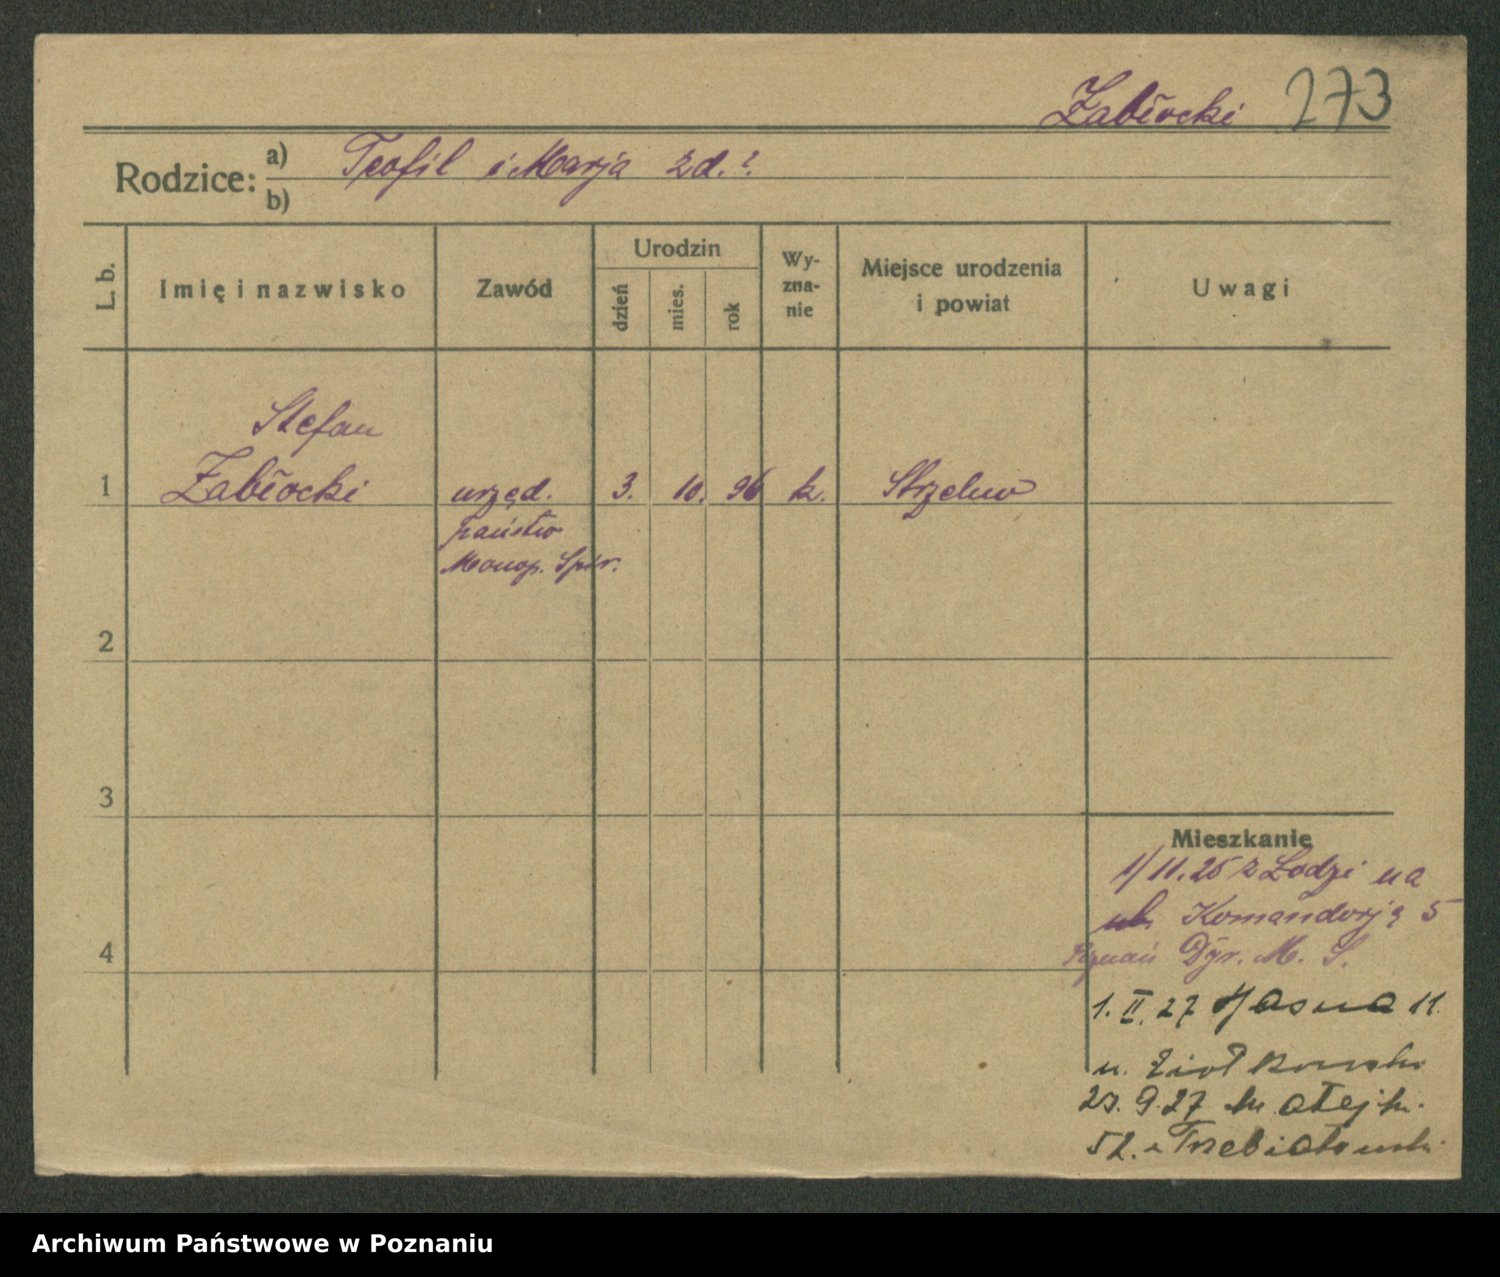 Zabłocki 273
Rodzice: a) Teofil i Marja zd. ?
b)
L. b.
Imię i nazwisko
Zawód
Urodzin
dzień
mies.
rok
Wy-
zna-
nie
Miejsce urodzenia
i powiat
Uwagi
Stefan
1 Zabłocki urzęd. 3. 10. 96 k. Strzelno
państw
Monop. Spir.
2
3
Mieszkanie
1/11.26 z Łodzi na
ul. Komandorją 5
4 Poznań Dyr. M. S.
1. II. 27 Jasna 11.
u. Ziołkowski
23. 9. 27 Matejk.
52. u Trzebiatowski
Archiwum Państwowe w Poznaniu